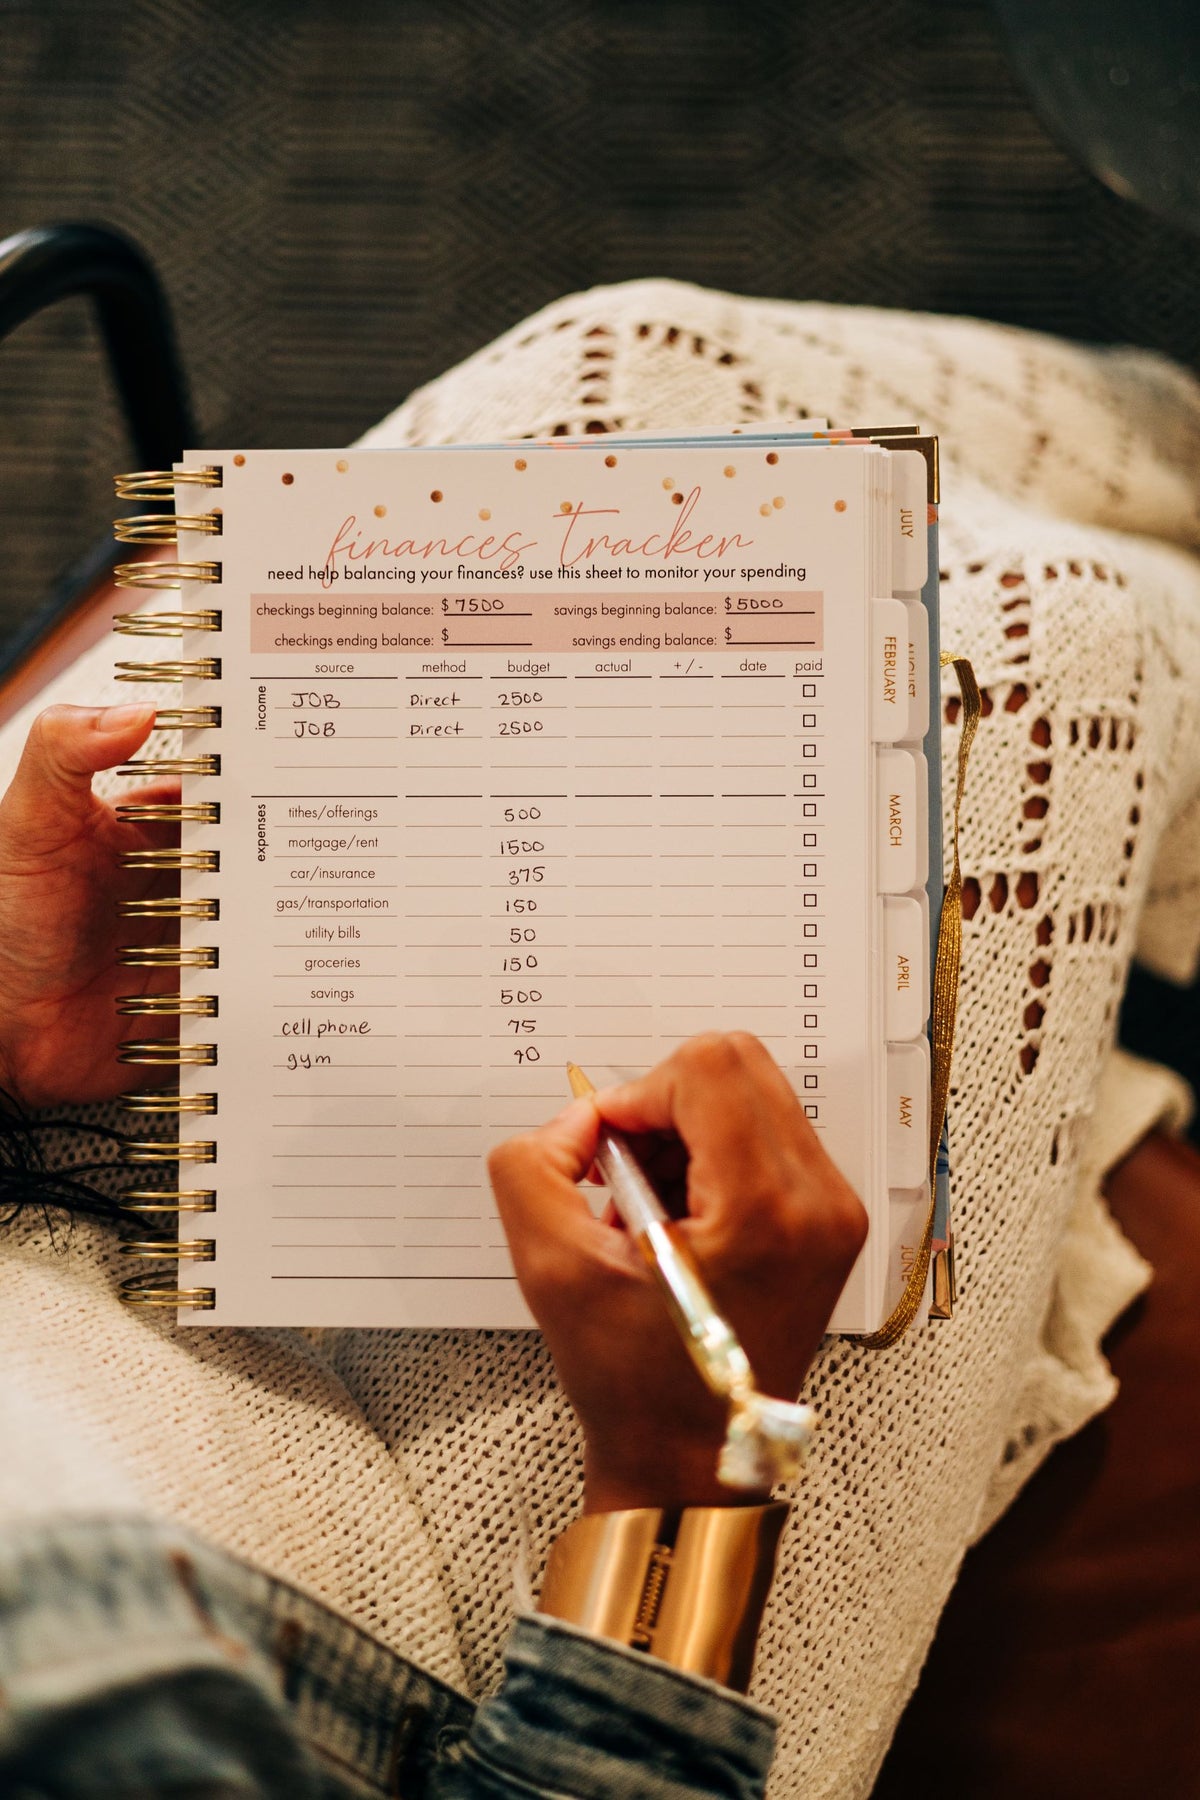 finances tracker
need help balancing your finances? use this sheet to monitor your spending
checkings beginning balance: $ 7500 savings beginning balance: $ 5000
checkings ending balance: $ savings ending balance: $
source method budget actual + / - date paid
income
JOB Direct 2500
JOB Direct 2500
expenses
tithes/offerings 500
mortgage/rent 1500
car/insurance 375
gas/transportation 150
utility bills 50
groceries 150
savings 500
cell phone 75
gym 40
JULY
AUGUST
FEBRUARY
MARCH
APRIL
MAY
JUNE